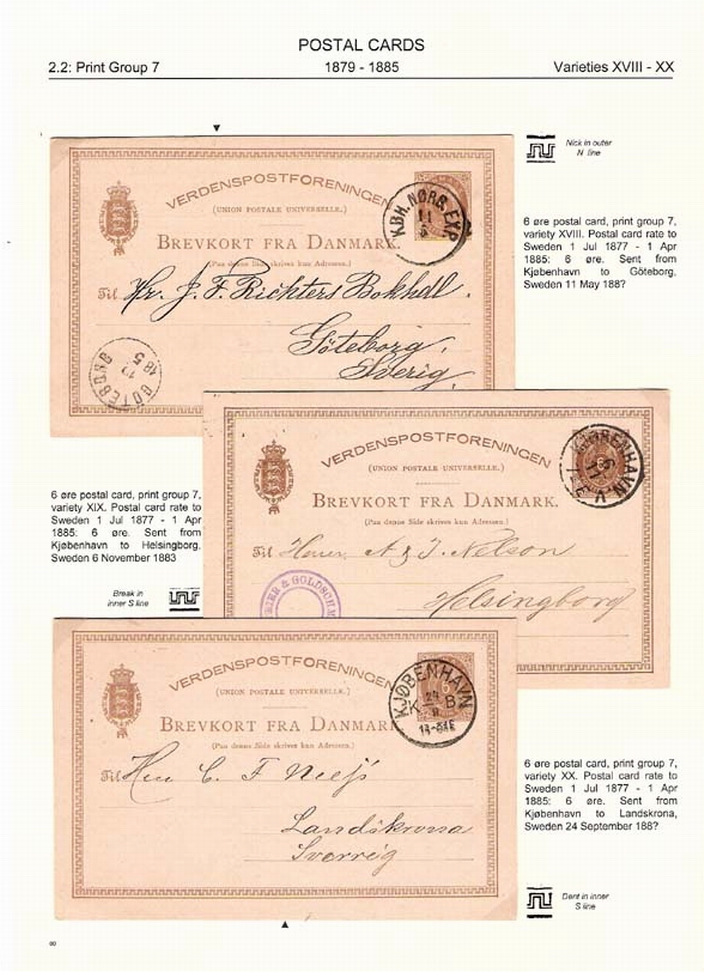 POSTAL CARDS
2.2: Print Group 7 1879 - 1885 Varieties XVIII - XX
Nick in outer
N line
VERDENSPOSTFORENINGEN
(UNION POSTALE UNIVERSELLE.)
BREVKORT FRA DANMARK.
(Paa denne Side skrives kun Adressen.)
KBH. NØRB. EXP
11
5
Til Hr. J. F. Richters Bokhdl.
Göteborg,
Sverig.
GÖTEBORG
12
5
6 øre postal card, print group 7,
variety XVIII. Postal card rate to
Sweden 1 Jul 1877 - 1 Apr
1885: 6 øre. Sent from
Kjøbenhavn to Göteborg,
Sweden 11 May 188?
VERDENSPOSTFORENINGEN
(UNION POSTALE UNIVERSELLE.)
BREVKORT FRA DANMARK.
(Paa denne Side skrives kun Adressen.)
KJØBENHAVN V.
6
Til Herrer A & J. Nelson
Helsingborg
& GOLDSCHM
6 øre postal card, print group 7,
variety XIX. Postal card rate to
Sweden 1 Jul 1877 - 1 Apr
1885: 6 øre. Sent from
Kjøbenhavn to Helsingborg,
Sweden 6 November 1883
Break in
inner S line
VERDENSPOSTFORENINGEN
(UNION POSTALE UNIVERSELLE.)
BREVKORT FRA DANMARK
(Paa denne Side skrives kun Adressen.)
KJØBENHAVN
K B
24
Til Herr C. F.
Landskrona
Sverrig
6 øre postal card, print group 7,
variety XX. Postal card rate to
Sweden 1 Jul 1877 - 1 Apr
1885: 6 øre. Sent from
Kjøbenhavn to Landskrona,
Sweden 24 September 188?
Dent in inner
S line